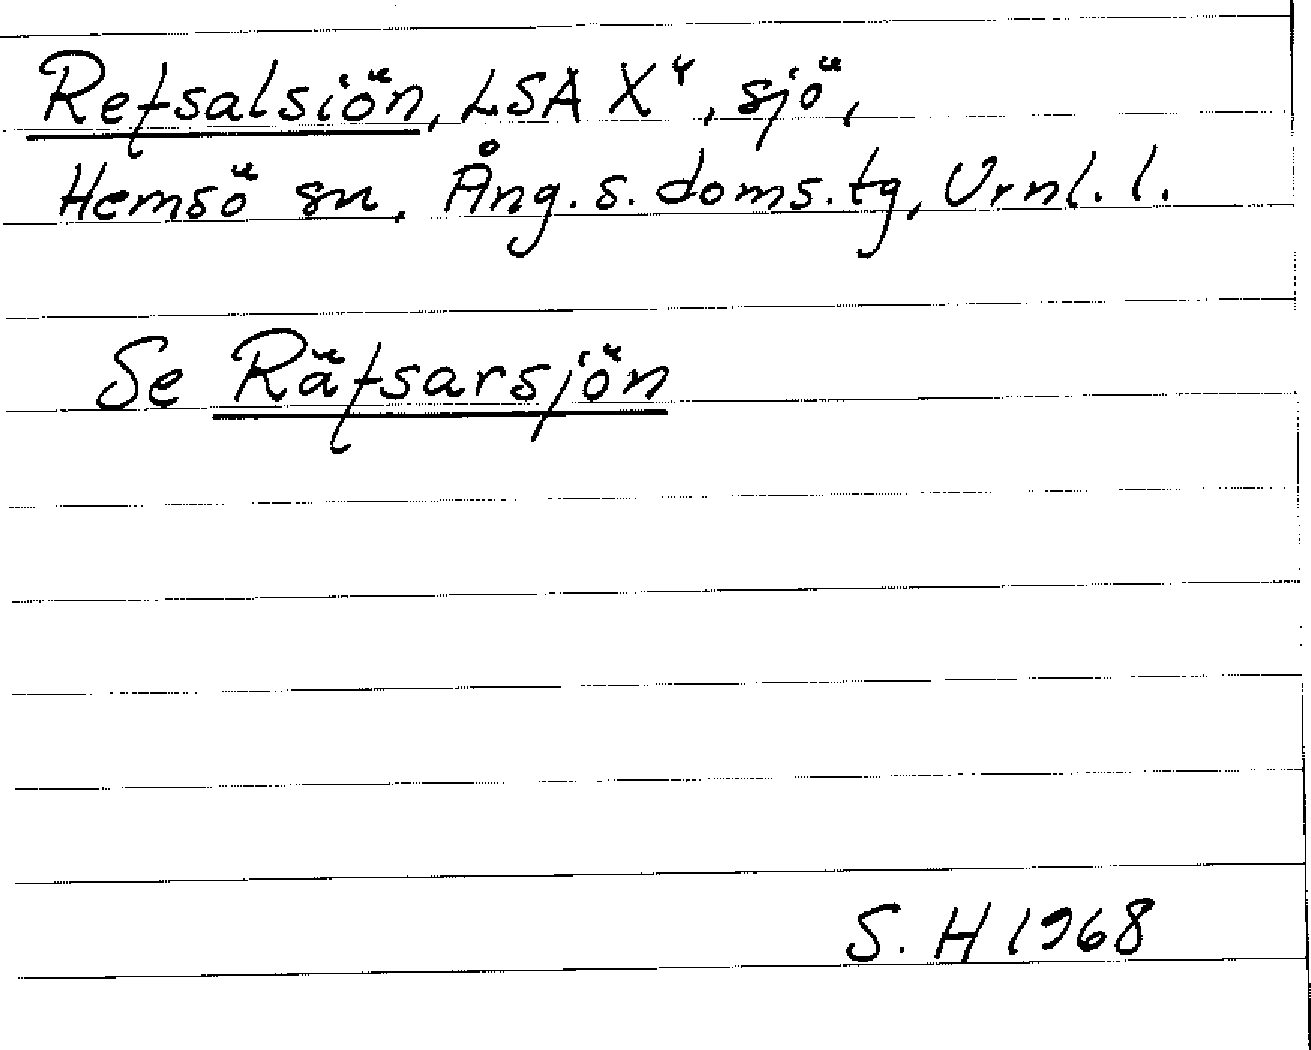 Refsalsiön, LSA X⁴, sjö,
Hemsö sn, Ång. s. doms. tg, Vrnl. l.
Se Räfsarsjön
S. H 1968